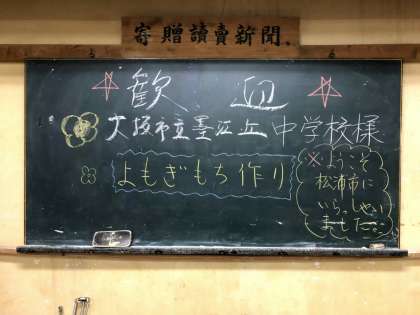 寄贈讀賣新聞
歓迎
大阪市立墨江丘中学校様
よもぎもち作り
※ようこそ
松浦市に
いらっしゃい
ました